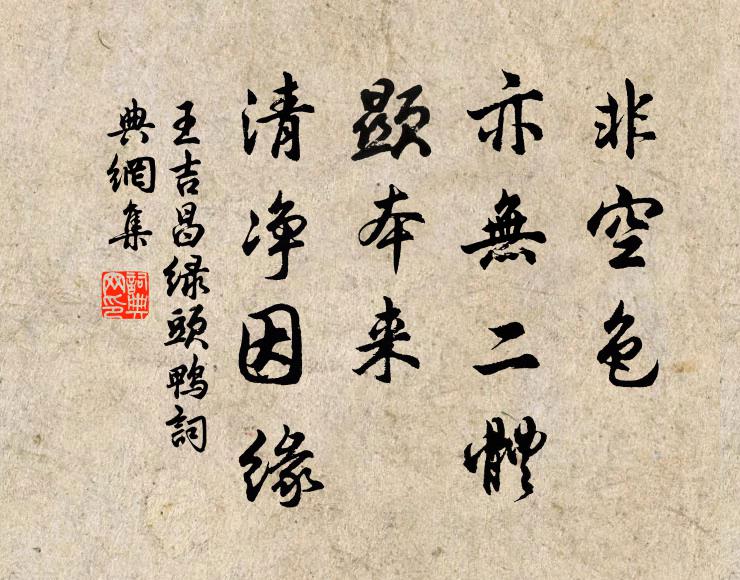 非空色
亦無二體
顯本来
清净因緣
王吉昌绿頭鴨詞
典網集
詞典網印